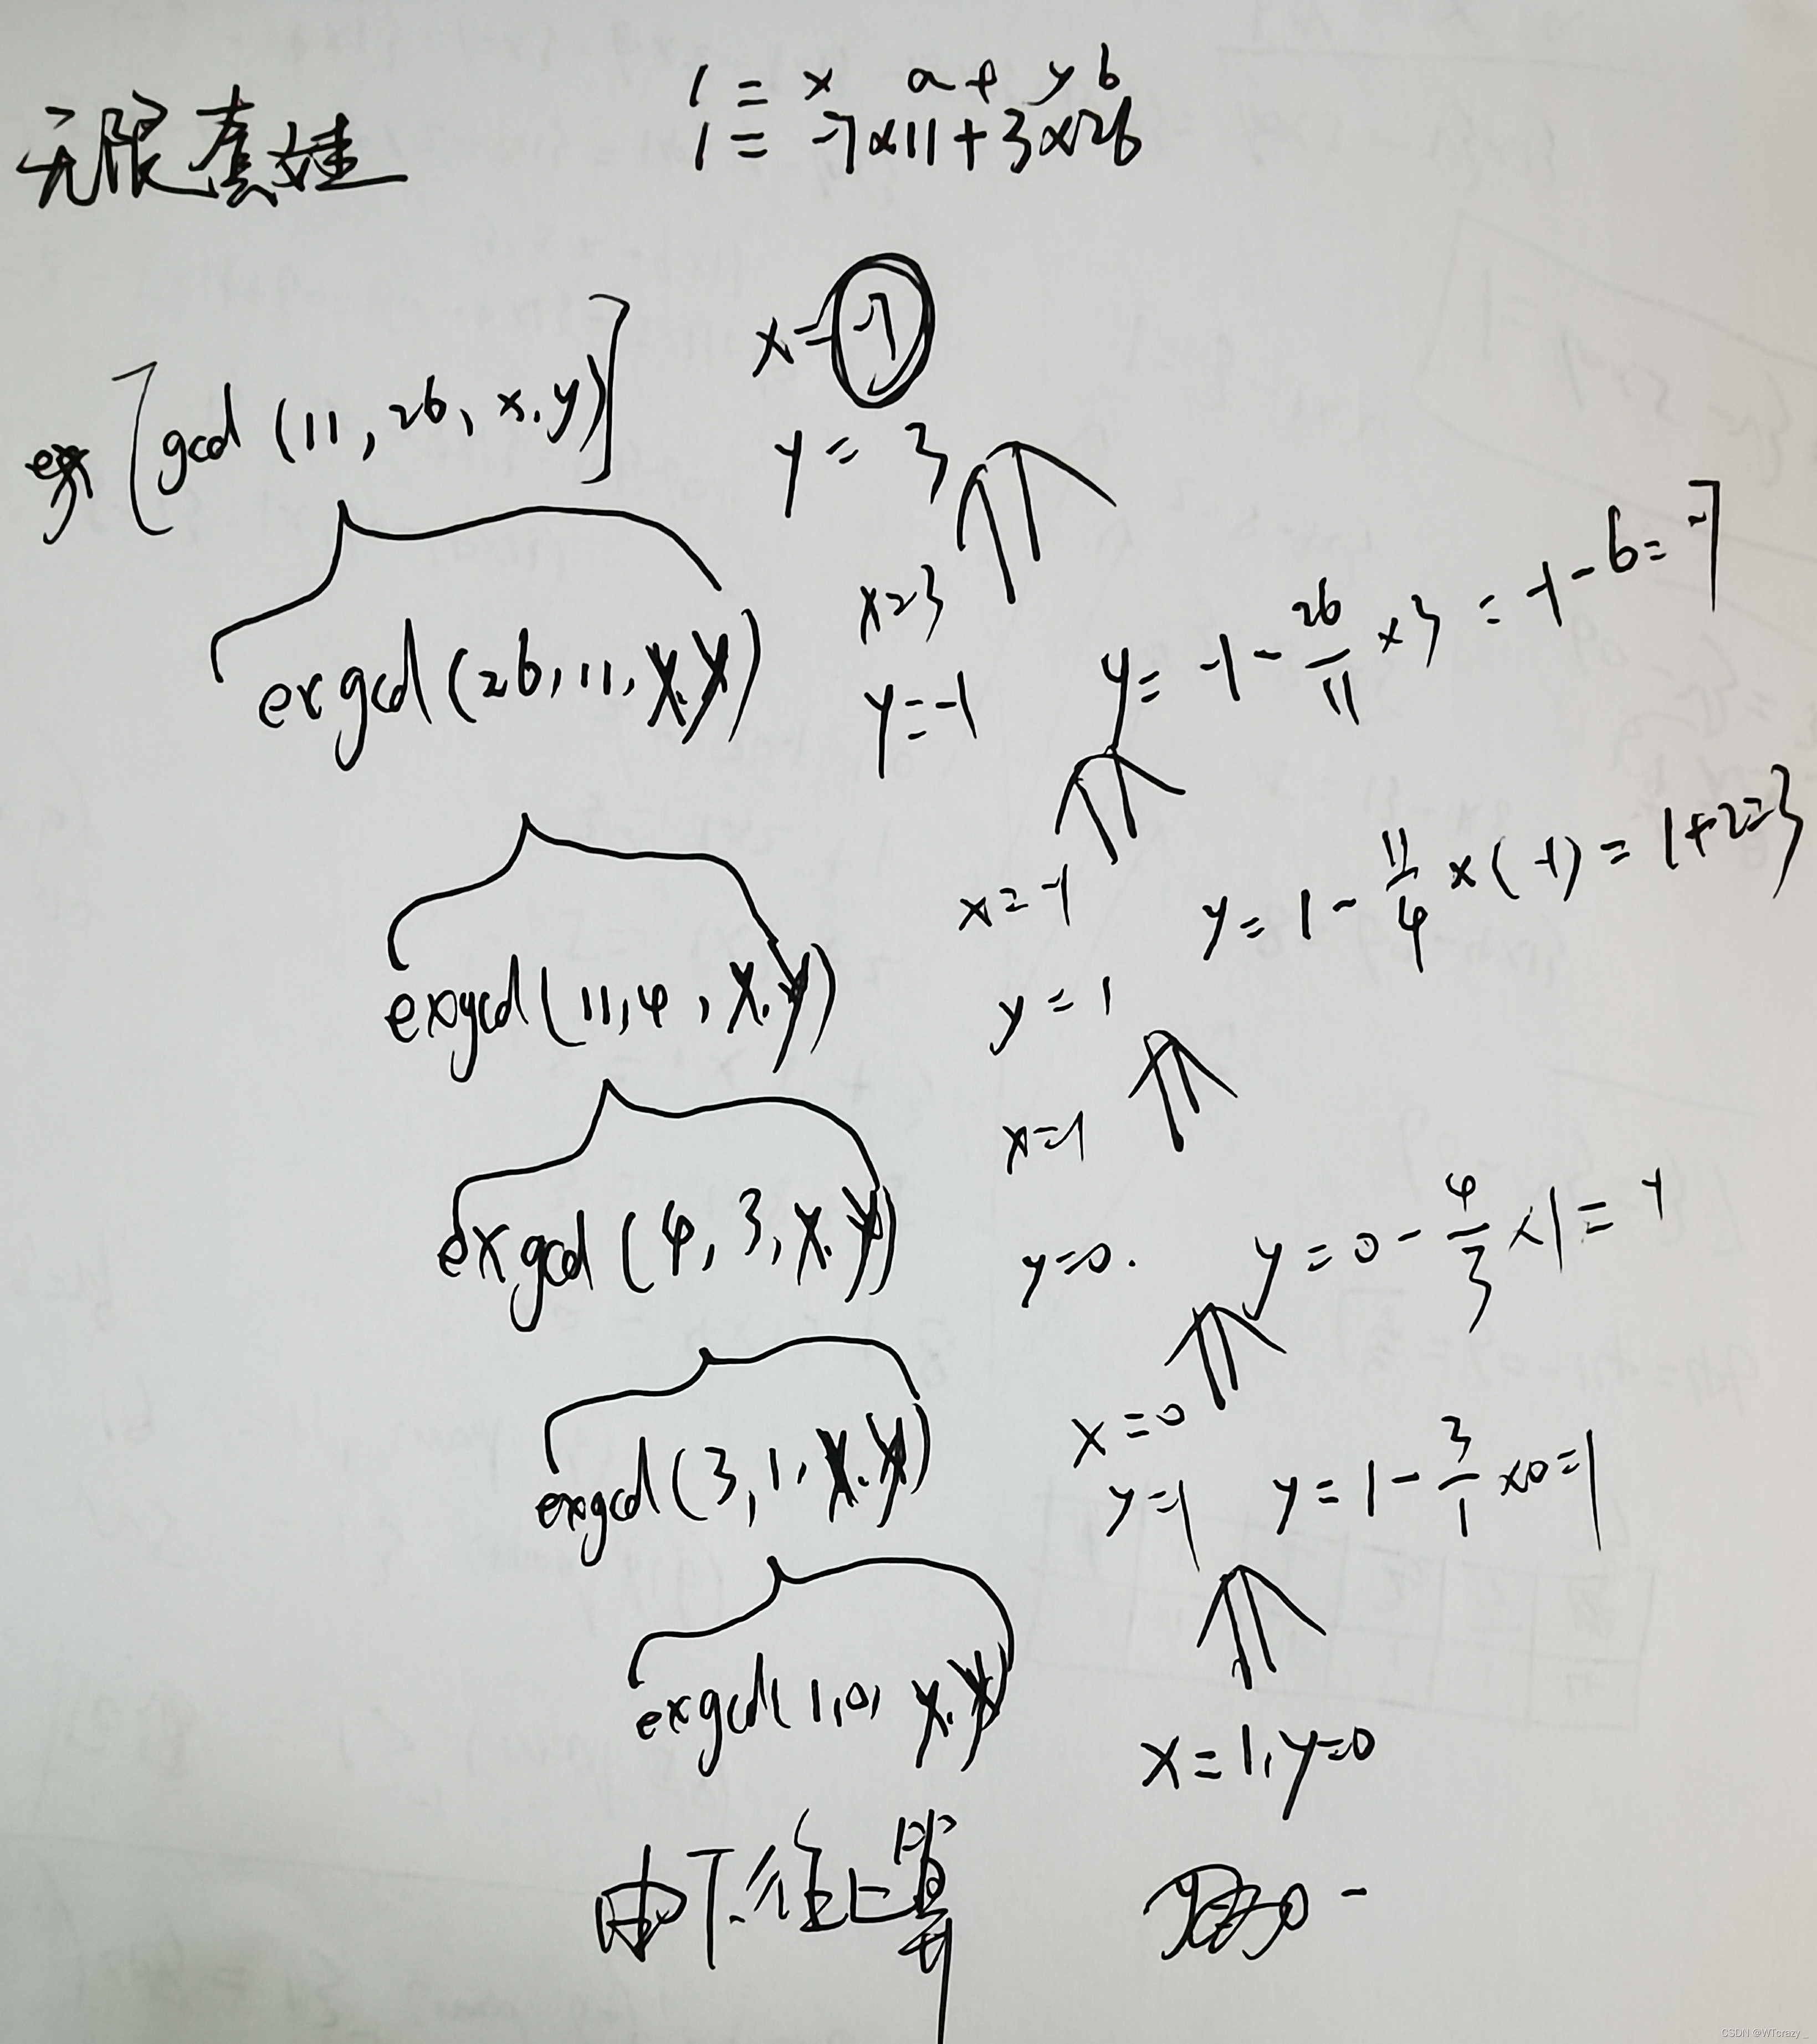 1 = x a + y b
1 = -7×11+3×26
无限套娃
x=-7
ex[gcd(11,26,x.y)]
y = 3
x=3
y= -1-26/11×3 = -1-6=-7
exgcd(26,11,x.y)
y=-1
x=-1
y= 1-11/4×(-1) = 1+2=3
exgcd(11,4,x.y)
y=1
x=1
exgcd(4,3,x.y)
y=0.
y=0-4/3×1=-1
x=0
exgcd(3,1,x.y)
y=1
y=1-3/1×0=1
exgcd(1,0,x.y)
x=1,y=0
由下往上算
CSDN @WTcrazy_